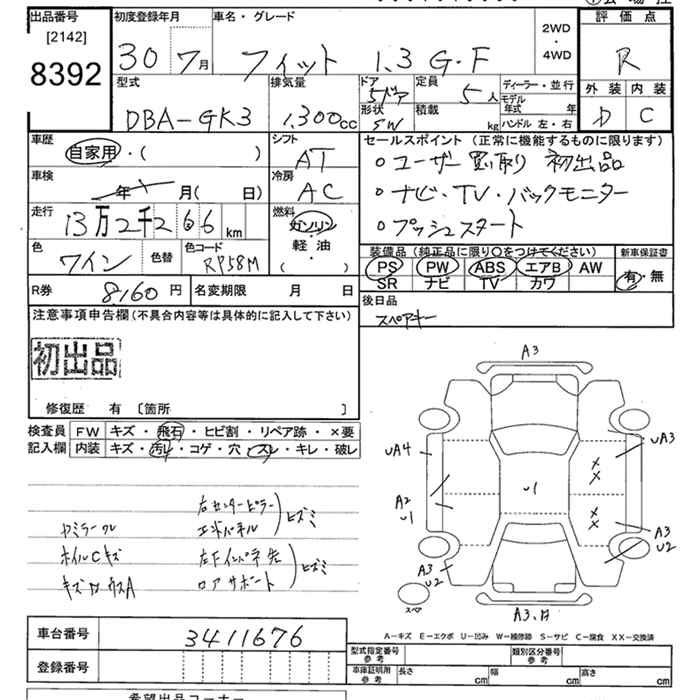 出品番号 初度登録年月 車名・グレード 2WD・4WD 評価点
[2142]
8392 30 7月 フィット 1.3 G・F R
外装 内装
D C
型式 排気量 ドア 定員 ディーラー・並行
DBA-GK3 1,300cc 5ドア 5人 モデル年式 年
形状 積載 kg ハンドル 左・右
SW
車歴 シフト セールスポイント (正常に機能するものに限ります)
自家用・( ) AT ○ユーザー買い取り 初出品
車検 冷房
年 月( 日) AC ○ナビ・TV・バックモニター
走行 燃料
13万2千266km ガソリン ○プッシュスタート
軽・油
( )
色 色替 色コード 装備品 (純正品に限り○をつけてください) 新車保証書
ワイン RP58M PS PW ABS エアB AW 有・無
SR ナビ TV カワ
R券 8160円 名変期限 月 日 後日品
スペアキー
注意事項申告欄(不具合内容等は具体的に記入して下さい)
初出品
修復歴 有 [箇所 ]
検査員 FW キズ・飛石・ヒビ割・リペア跡・×要
記入欄 内装 キズ・汚レ・コゲ・穴・スレ・キレ・破レ
右センターピラー
エンドパネル ヒズミ
左ミラーワレ
ホイルCキズ
左下インパネ先
ロアサポート ヒズミ
A3
UA4 UA3
××
U1
A2
U1
××
A3
U2
A3
U2
スペア
A3、
A-キズ E-エクボ U-凹み W-補修跡 S-サビ C-腐食 XX-交換済
車台番号 3411676
登録番号
型式指定番号 参考 類別区分番号 参考
車庫証明用 参考 長さ cm 幅 cm 高さ cm
希望出品コーナー